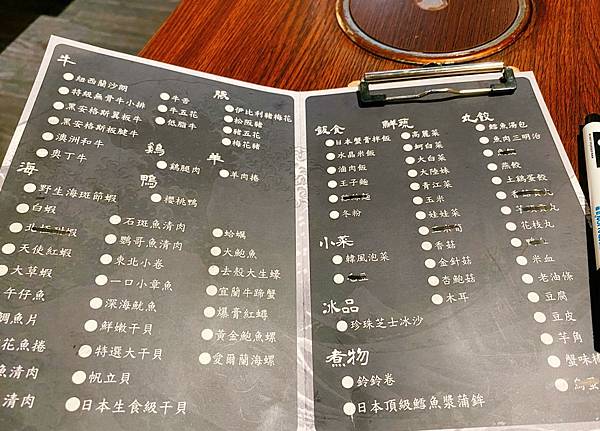 牛
紐西蘭沙朗
特級無骨牛小排
黑安格斯翼板牛
黑安格斯板腱牛
澳洲和牛
奧丁牛
牛舌
牛五花
低脂牛
豚
伊比利豬梅花
松阪豬
豬五花
梅花豬
雞
雞腿肉
羊
羊肉捲
鴨
櫻桃鴨
海
野生海斑節蝦
白蝦
天使紅蝦
大草蝦
午仔魚
鯛魚片
花魚捲
魚清肉
清肉
石斑魚清肉
鸚哥魚清肉
東北小卷
一口小章魚
深海魷魚
鮮嫩干貝
特選大干貝
帆立貝
日本生食級干貝
蛤蠣
大鮑魚
去殼大生蠔
宜蘭牛蹄蟹
爆膏紅蟳
黃金鮑魚螺
愛爾蘭海螺
飯食
日本蟹膏拌飯
水晶米飯
滷肉飯
王子麵
冬粉
小菜
韓風泡菜
冰品
珍珠芝士冰沙
煮物
鈴鈴卷
日本頂級鱈魚漿蒲鉾
鮮蔬
高麗菜
蚵白菜
大白菜
大陸妹
青江菜
玉米
娃娃菜
香菇
金針菇
杏鮑菇
木耳
丸餃
鱈魚湯包
魚肉三明治
燕餃
土鷄蛋餃
花枝丸
米血
老油條
豆腐
豆皮
芋角
蟹味